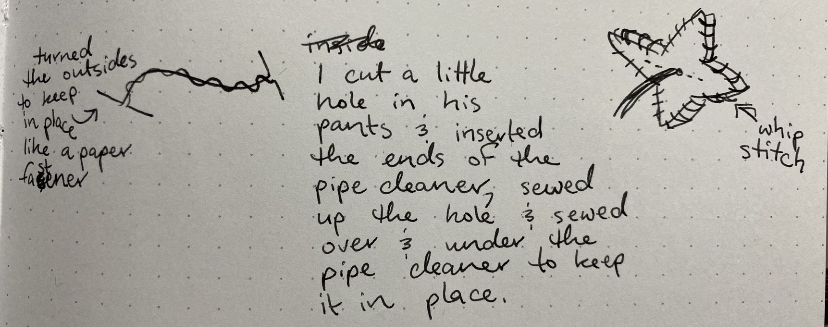 turned
the outsides
to keep
in place
like a paper
fastener
inside
I cut a little
hole in his
pants & inserted
the ends of the
pipe cleaner, sewed
up the hole & sewed
over & under the
pipe cleaner to keep
it in place.
whip
stitch